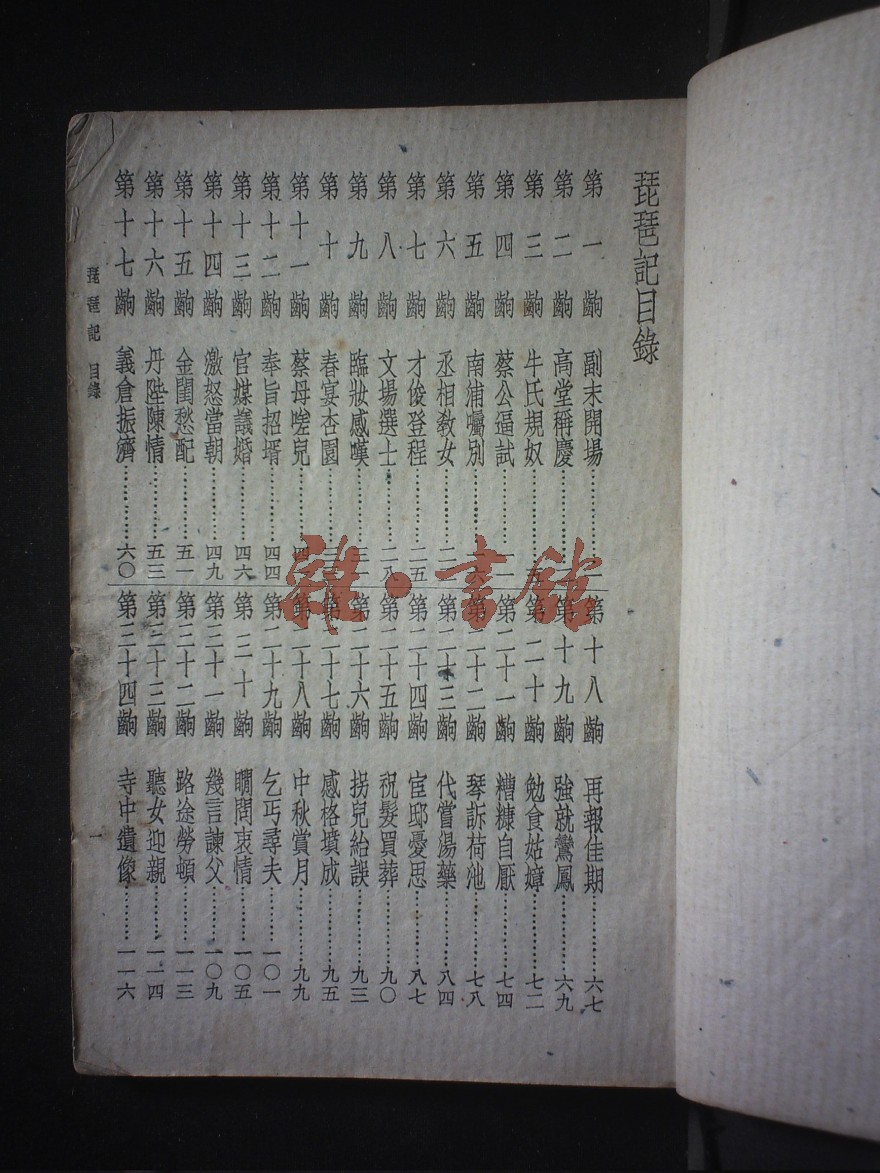 琵琶記目錄
第一齣 副末開場…………
第二齣 高堂稱慶…………
第三齣 牛氏規奴…………
第四齣 蔡公逼試…………
第五齣 南浦囑別…………
第六齣 丞相教女…………
第七齣 才俊登程…………二五
第八齣 文場選士…………二八
第九齣 臨妝感嘆…………
第十齣 春宴杏園…………
第十一齣 蔡母嗟兒…………
第十二齣 奉旨招壻…………四四
第十三齣 官媒議婚…………四六
第十四齣 激怒當朝…………四九
第十五齣 金閨愁配…………五一
第十六齣 丹陛陳情…………五三
第十七齣 義倉振濟…………六〇
第十八齣 再報佳期…………六七
第十九齣 強就鸞鳳…………六九
第二十齣 勉食姑嫜…………七二
第二十一齣 糟糠自厭…………七四
第二十二齣 琴訴荷池…………七八
第二十三齣 代嘗湯藥…………八四
第二十四齣 宦邸憂思…………八七
第二十五齣 祝髮買葬…………九〇
第二十六齣 拐兒紿誤…………九三
第二十七齣 感格墳成…………九五
第二十八齣 中秋賞月…………九九
第二十九齣 乞丐尋夫…………一〇一
第三十齣 瞯問衷情…………一〇五
第三十一齣 幾言諫父…………一〇九
第三十二齣 路途勞頓…………一一三
第三十三齣 聽女迎親…………一一四
第三十四齣 寺中遺像…………一一六
琵琶記 目錄
一
雜·書館